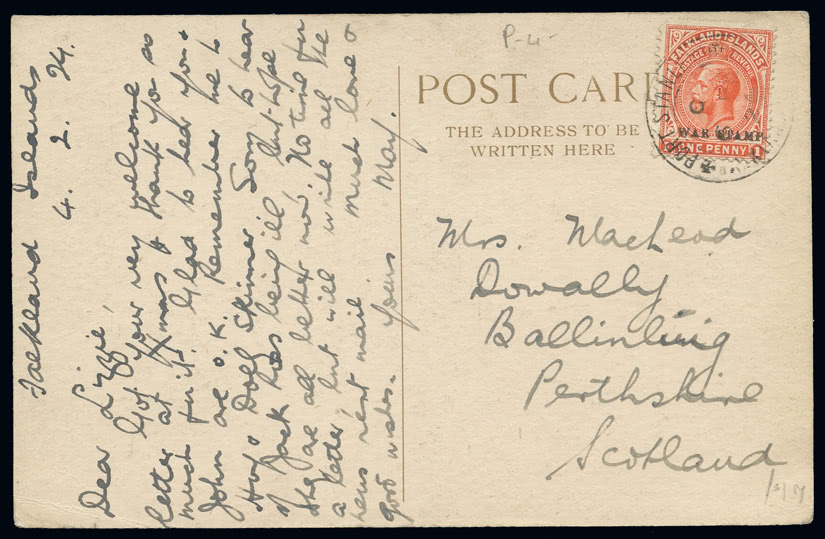 Falkland Islands
4. 2. 24.
Dear Lizzie,
Got your very welcome
letter at Xmas & thank you so
much for it. Glad to hear you &
John are O.K. Remember me to
Skinner Sorry to hear
Jack has being ill but hope
they are all better now. No time for
a letter but will write all the
news next mail much love &
good wishes. Yours May.
P-4-
POST CAR
THE ADDRESS TO BE
WRITTEN HERE
FALKLAND ISLANDS
POSTAGE REVENUE
WAR STAMP
ONE PENNY
PORT STANLEY
Mrs. MacLeod
Dowally
Ballinluig
Perthshire
Scotland